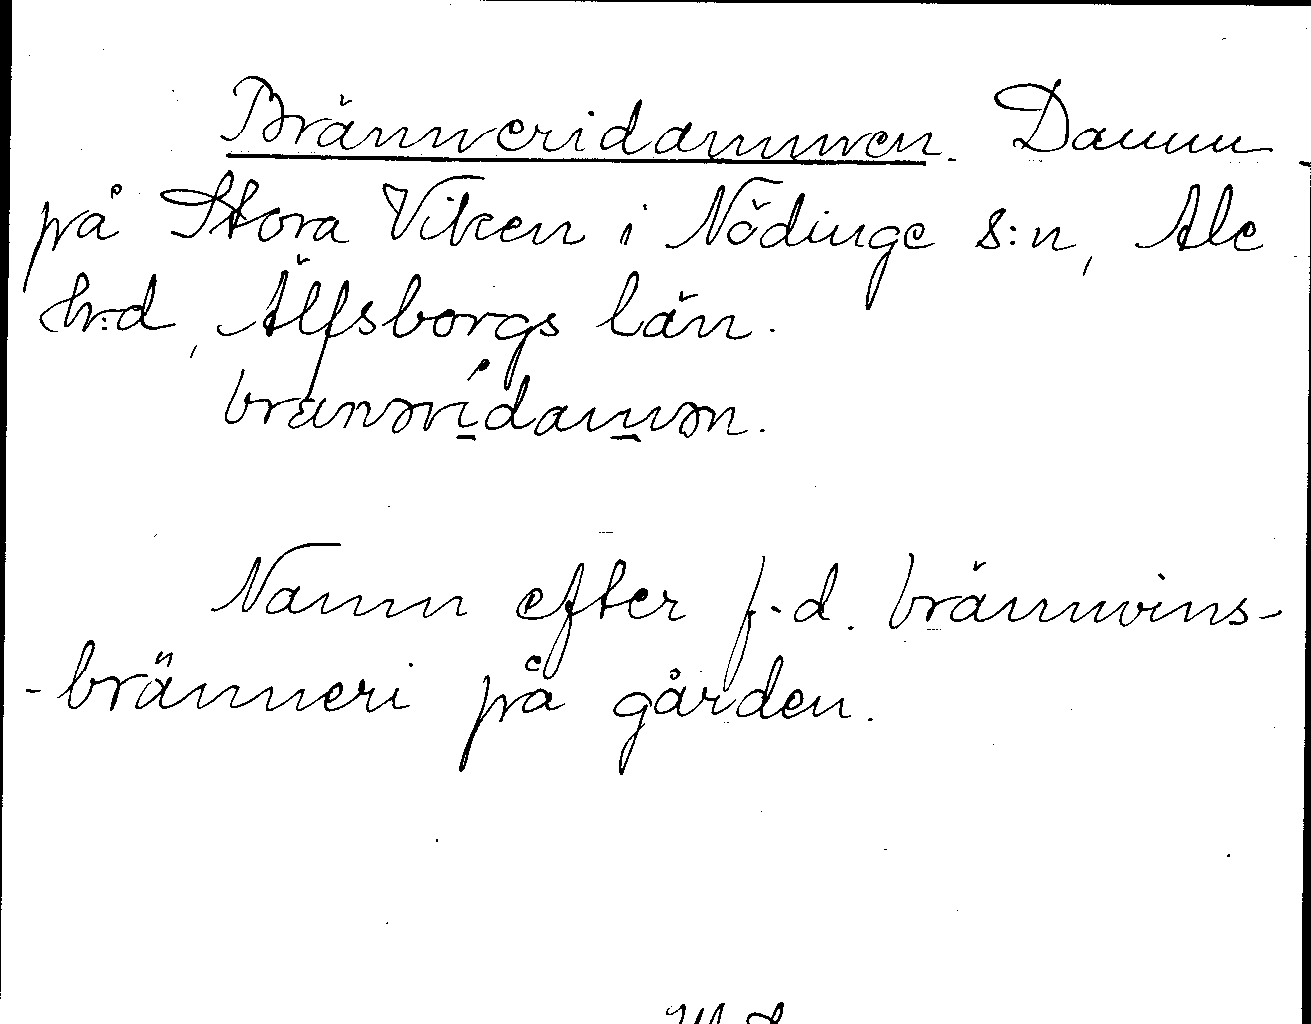 Bränneridammen. Damm
på Stora Viken i Nödinge s:n, Ale
hr:d, Älfsborgs län.
brænəri̱damən.
Namn efter f.d. brännvins-
-bränneri på gården.